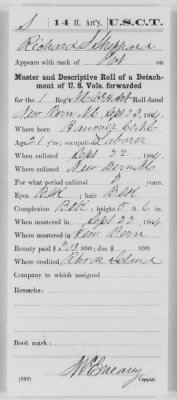 S | 14 H. Art'y. | U.S.C.T.
Richard Sheppard
Appears with rank of Pvt on
Muster and Descriptive Roll of a Detach-
ment of U. S. Vols. forwarded
for the 1 Reg't Roll dated
New Bern N.C., Sept 23, 1864.
Where born Hanover Co.
Age 21 y'rs; occupation Laborer
When enlisted Sept 22, 1864.
Where enlisted New Bern N.C.
For what period enlisted 3 years.
Eyes Blk; hair Blk
Complexion Blk; height 5 ft. 6 in.
When mustered in Sept 22, 1864.
Where mustered in New Bern
Bounty paid $ 100; due $ 100
Where credited Rhode Island
Company to which assigned
Remarks:
Book mark:
(339) Copyist.